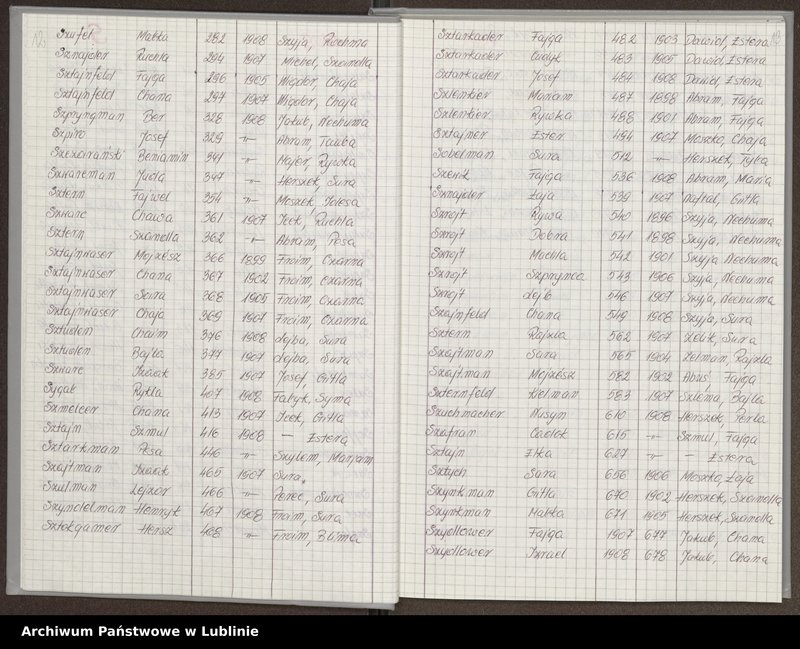 Szufel Malka 282 1908 Szyja, Ruchma
Sznajder Ruchla 294 1907 Michel, Szandla
Sztajnfeld Fajga 296 1905 Migdor, Chaja
Sztajnfeld Chana 297 1907 Migdor, Chaja
Szpryngman Ber 328 1908 Jakub, Nechuma
Szpiro Josef 329 -"- Abram, Tauba
Beniamin 341 -"- Majer, Rywka
Szwarcman Juda 347 -"- Herszek, Sura
Sztern Fajwel 354 -"- Moszek,
Szwarc Chawa 361 1907 Icek, Ruchla
Sztern Szandla 362 -"- Abram, Pesa
Sztajnwaser Mojżesz 366 1899 Froim, Czarna
Sztajnwaser Chana 367 1902 Froim, Czarna
Sztajnwaser Sura 368 1905 Froim, Czarna
Sztajnwaser Chaja 369 1907 Froim, Czarna
Chaim 376 1908 Lejba, Sura
Bajla 377 1907 Lejba, Sura
Szwarc Izaak 385 1907 Josef, Gitla
Sygał Rykla 407 1908 Syma
Szmelcer Chana 413 1907 Icek, Gitla
Sztajn Szmul 416 1908 — Estera
Sztarkman Pesa 446 -"- Szulem, Marjam
Szajtman Izaak 465 1907 Sura
Szulman Lejzor 466 -"- Perec, Sura
Szyndelman Henryk 467 1908 Froim, Sura
Hersz 468 -"- Froim, Blima
Sztarkader Fajga 482 1903 Dawid, Estera
Sztarkader Cudyk 483 1905 Dawid, Estera
Sztarkader Josef 484 1908 Dawid, Estera
Szlenkier Mariam 487 1898 Abram, Fajga
Szlenkier Rywka 488 1901 Abram, Fajga
Sztajner Ester 494 1907 Moszko, Chaja
Sura 512 -"- Herszek, Tyla
Fajga 536 1908 Abram, Maria
Sznajder Łaja 539 1907 Naftal, Gitla
Sznajt Rywa 540 1896 Szyja, Nechuma
Sznajt Dobra 541 1898 Szyja, Nechuma
Sznajt Machla 542 1901 Szyja Nechuma
Sznajt Szprynca 543 1906 Szyja, Nechuma
Sznajt Lejb 546 1907 Szyja, Nechuma
Szajnfeld Chana 549 1908 Szyja, Sura
Sztern Rajzla 562 1907 Zelik, Sura
Szajtman Sara 565 1904 Kelman, Rajzla
Szajtman Mojżesz 582 1902 Abuś, Fajga
Szternfeld Kelman 583 1907 Szlema, Bajla
Szuchmacher Nusym 610 1908 Herszek, Perla
Szafran Cadok 615 -"- Szmul, Fajga
Sztajn Etka 627 -"- — Estera
Sztych Sara 656 1906 Moszko, Łaja
Szynkman Gitla 670 1902 Herszek, Szandla
Szynkman Malka 671 1905 Herszek, Szandla
Szydłower Fajga 1907 677 Jakub, Chana
Szydłower Izrael 1908 678 Jakub, Chana
Archiwum Państwowe w Lublinie